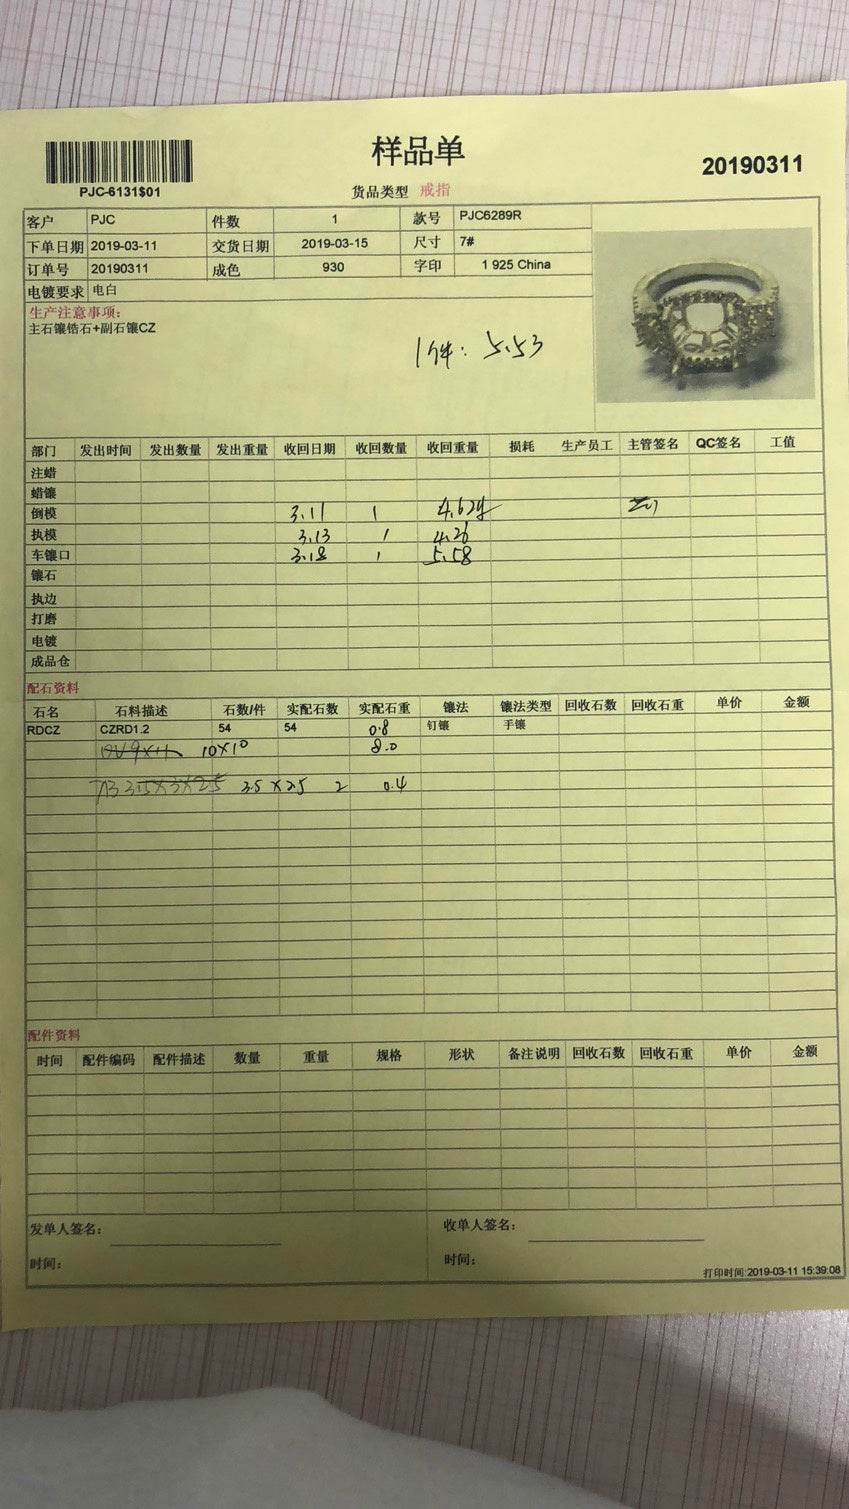 样品单
20190311
PJC-6131$01
货品类型 戒指
客户 PJC 件数 1 款号 PJC6289R
下单日期 2019-03-11 交货日期 2019-03-15 尺寸 7#
订单号 20190311 成色 930 字印 1 925 China
电镀要求 电白
生产注意事项:
主石镶锆石+副石镶CZ
1件: 5.53
部门 发出时间 发出数量 发出重量 收回日期 收回数量 收回重量 损耗 生产员工 主管签名 QC签名 工值
注蜡
蜡镶
倒模 3.11 1 4.62g
执模 3.13 1 4.26
车镶口 3.18 1 5.58
镶石
执边
打磨
电镀
成品仓
配石资料
石名 石料描述 石数/件 实配石数 实配石重 镶法 镶法类型 回收石数 回收石重 单价 金额
RDCZ CZRD1.2 54 54 0.8 钉镶 手镶
10X10 8.0
3.5X2.5 2 0.4
配件资料
时间 配件编码 配件描述 数量 重量 规格 形状 备注说明 回收石数 回收石重 单价 金额
发单人签名: 收单人签名:
时间: 时间:
打印时间:2019-03-11 15:39:08